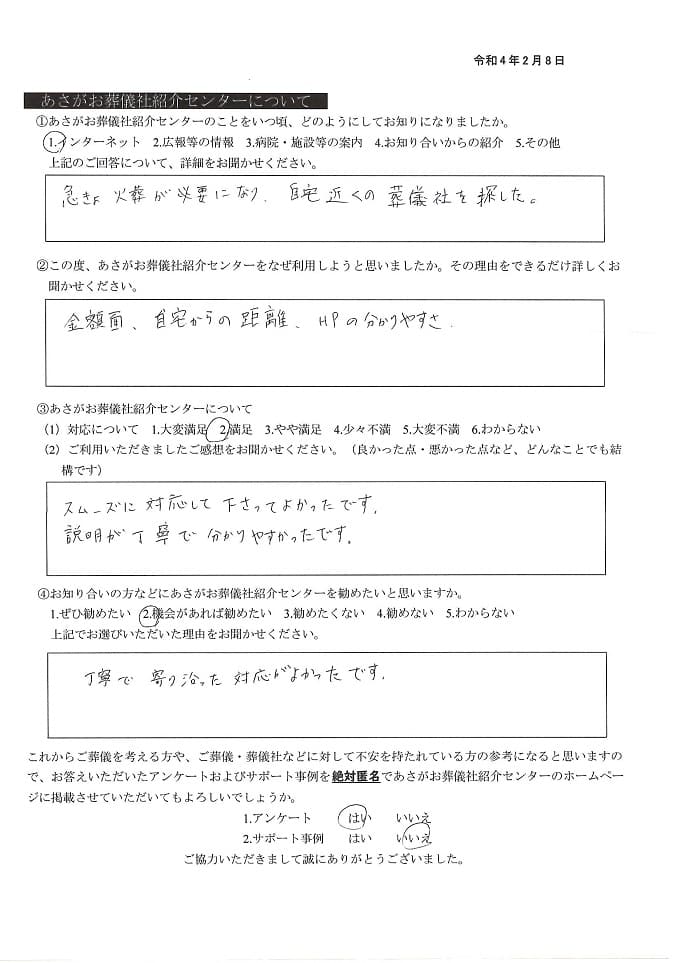 令和4年2月8日
あさがお葬儀社紹介センターについて
①あさがお葬儀社紹介センターのことをいつ頃、どのようにしてお知りになりましたか。
1.インターネット 2.広報等の情報 3.病院・施設等の案内 4.お知り合いからの紹介 5.その他
上記のご回答について、詳細をお聞かせください。
急きょ火葬が必要になり、自宅近くの葬儀社を探した。
②この度、あさがお葬儀社紹介センターをなぜ利用しようと思いましたか。その理由をできるだけ詳しくお
聞かせください。
金額面、自宅からの距離、HPの分かりやすさ.
③あさがお葬儀社紹介センターについて
(1) 対応について 1.大変満足 2.満足 3.やや満足 4.少々不満 5.大変不満 6.わからない
(2) ご利用いただきましたご感想をお聞かせください。（良かった点・悪かった点など、どんなことでも結
構です）
スムーズに対応して下さってよかったです.
説明が丁寧で分かりやすかったです.
④お知り合いの方などにあさがお葬儀社紹介センターを勧めたいと思いますか。
1.ぜひ勧めたい 2.機会があれば勧めたい 3.勧めたくない 4.勧めない 5.わからない
上記でお選びいただいた理由をお聞かせください。
丁寧で寄り沿った対応がよかったです.
これからご葬儀を考える方や、ご葬儀・葬儀社などに対して不安を持たれている方の参考になると思いますの
で、お答えいただいたアンケートおよびサポート事例を絶対匿名であさがお葬儀社紹介センターのホームペー
ジに掲載させていただいてもよろしいでしょうか。
1.アンケート はい いいえ
2.サポート事例 はい いいえ
ご協力いただきまして誠にありがとうございました。